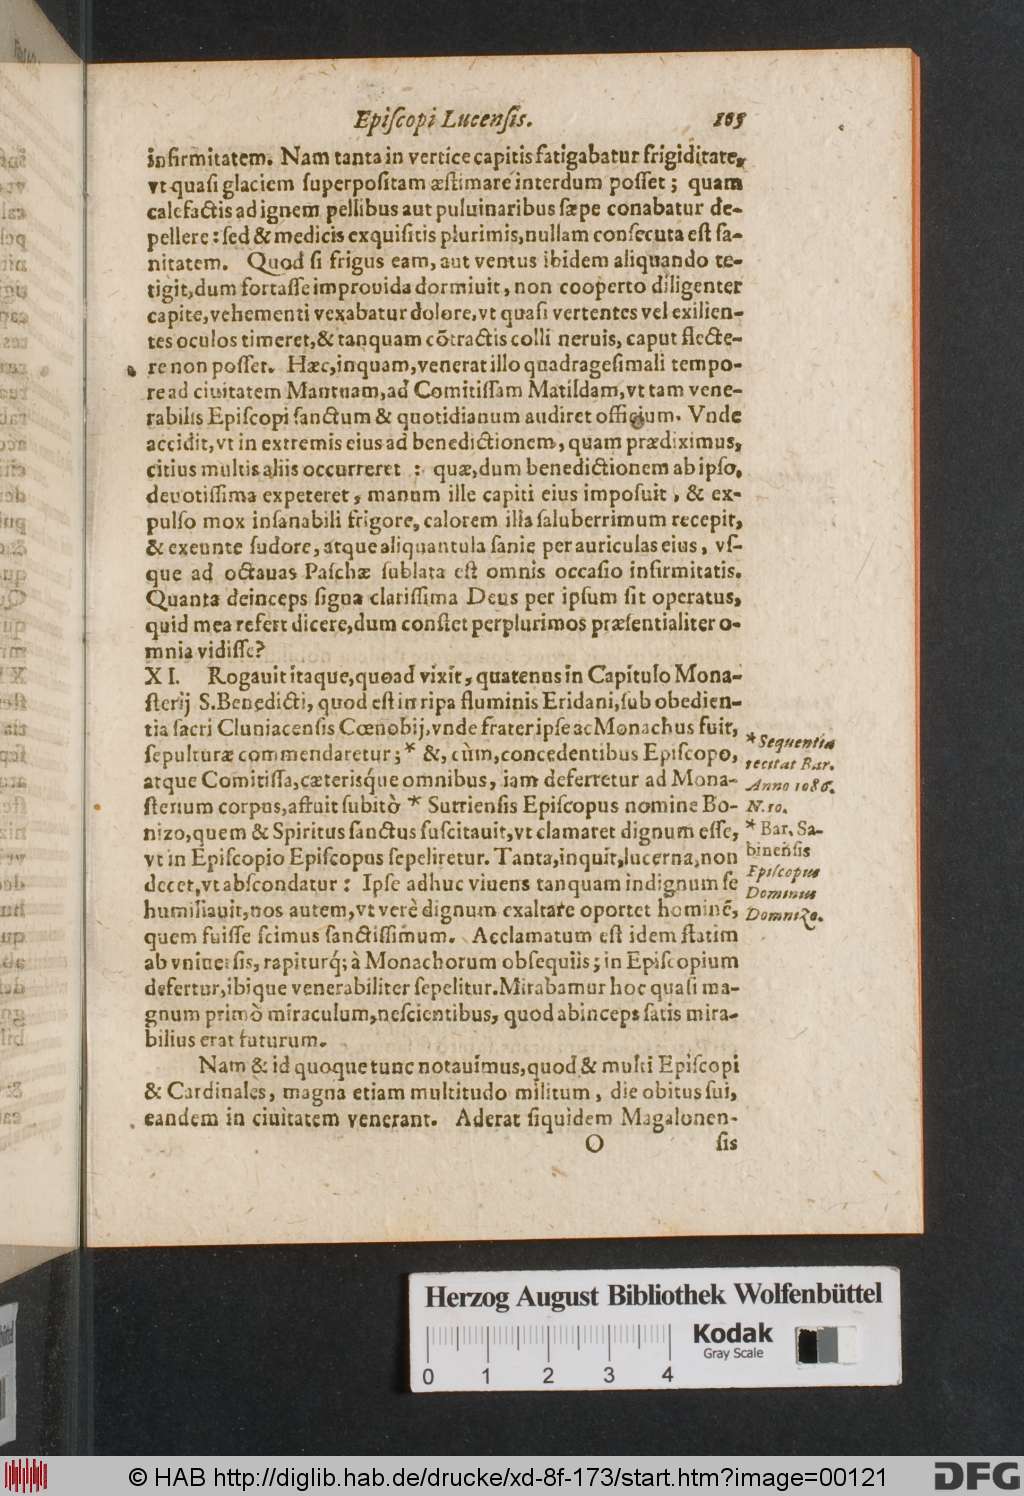 Epiſcopi Lucenſis. 105
infirmitatem. Nam tanta in vertice capitis fatigabatur frigiditate,
vt quaſi glaciem ſuperpoſitam æſtimare interdum poſſet; quam
calefactis ad ignem pellibus aut puluinaribus ſæpe conabatur de-
pellere: ſed & medicis exquiſitis plurimis, nullam conſecuta eſt ſa-
nitatem. Quod ſi frigus eam, aut ventus ibidem aliquando te-
tigit, dum fortaſſe improuida dormiuit, non cooperto diligenter
capite, vehementi vexabatur dolore, vt quaſi vertentes vel exilien-
tes oculos timeret, & tanquam cõtractis colli neruis, caput flecte-
re non poſſet. Hæc, inquam, venerat illo quadrageſimali tempo-
re ad ciuitatem Mantuam, ad Comitiſſam Matildam, vt tam vene-
rabilis Epiſcopi ſanctum & quotidianum audiret officium. Vnde
accidit, vt in extremis eius ad benedictionem, quam prædiximus,
citius multis aliis occurreret : quæ, dum benedictionem ab ipſo,
deuotiſſima expeteret, manum ille capiti eius impoſuit, & ex-
pulſo mox inſanabili frigore, calorem illa ſaluberrimum recepit,
& exeunte ſudore, atque aliquantula ſanie per auriculas eius, vſ-
que ad octauas Paſchæ ſublata eſt omnis occaſio infirmitatis.
Quanta deinceps ſigna clariſſima Deus per ipſum ſit operatus,
quid mea refert dicere, dum conſtet perplurimos præſentialiter o-
mnia vidiſſe?
XI. Rogauit itaque, quoad vixit, quatenus in Capitulo Mona-
ſterij S. Benedicti, quod eſt in ripa fluminis Eridani, ſub obedien-
tia ſacri Cluniacenſis Cœnobij, vnde frater ipſe ac Monachus fuit,
ſepulturæ commendaretur; * &, cùm, concedentibus Epiſcopo,
atque Comitiſſa, cæterisq́ue omnibus, iam deferretur ad Mona-
ſterium corpus, aſtuit ſubitò * Sutrienſis Epiſcopus nomine Bo-
nizo, quem & Spiritus ſanctus ſuſcitauit, vt clamaret dignum eſſe,
vt in Epiſcopio Epiſcopus ſepeliretur. Tanta, inquit, lucerna, non
decet, vt abſcondatur: Ipſe adhuc viuens tanquam indignum ſe
humiliauit, nos autem, vt verè dignum exaltare oportet hominẽ,
quem fuiſſe ſcimus ſanctiſſimum. Acclamatum eſt idem ſtatim
ab vniuerſis, rapiturq́; à Monachorum obſequiis; in Epiſcopium
defertur, ibique venerabiliter ſepelitur. Mirabamur hoc quaſi ma-
gnum primò miraculum, neſcientibus, quod abinceps ſatis mira-
bilius erat futurum.
Nam & id quoque tunc notauimus, quod & multi Epiſcopi
& Cardinales, magna etiam multitudo militum, die obitus ſui,
eandem in ciuitatem venerant. Aderat ſiquidem Magalonen-
O ſis
* Sequentia
recitat Bar.
Anno 1086.
N. 10.
* Bar. Sa-
binenſis
Epiſcopus
Dominus
Domnizo.
Herzog August Bibliothek Wolfenbüttel
Kodak
Gray Scale
0 1 2 3 4
© HAB http://diglib.hab.de/drucke/xd-8f-173/start.htm?image=00121
DFG